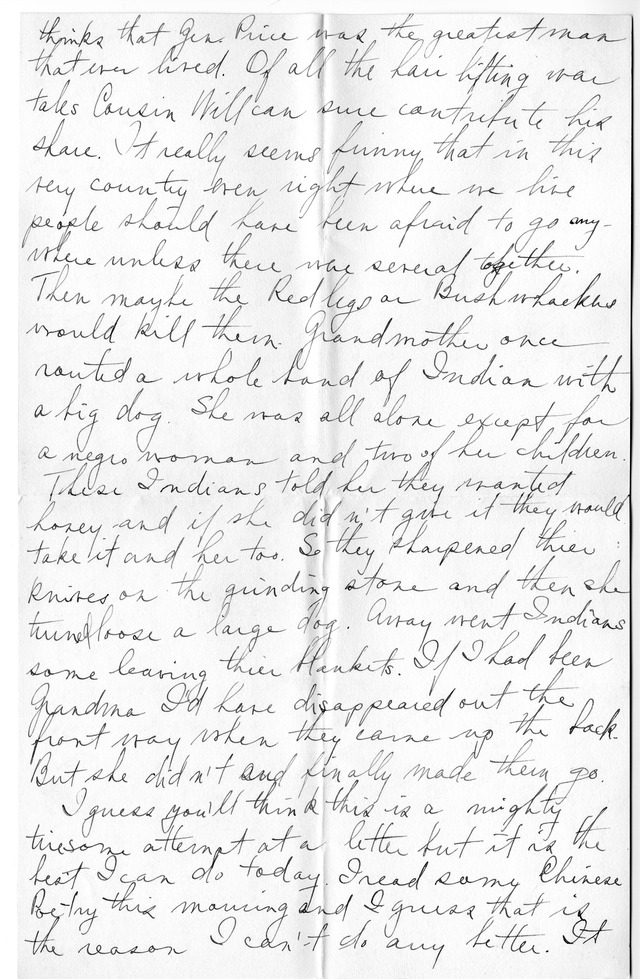 thinks that Gen. Price was the greatest man
that ever lived. Of all the hair lifting war
tales Cousin Will can sure contribute his
share. It really seems funny that in this
very country even right where we live
people should have been afraid to go any-
where unless there were several together.
Then maybe the Redlegs or Bushwhackers
would kill them. Grandmother once
routed a whole band of Indian with
a big dog. She was all alone except for
a negro woman and two of her children.
These Indians told her they wanted
honey and if she didn't give it they would
take it and her too. So they sharpened thier
knives on the grinding stone and then she
turned loose a large dog. Away went Indians
some leaving thier blankets. If I had been
Grandma I'd have disappeared out the
front way when they came up the back.
But she didn't and finally made them go.
I guess you'll think this is a mighty
tiresome attempt at a letter but it is the
best I can do today. I read some Chinese
Poetry this morning and I guess that is
the reason I can't do any better. It